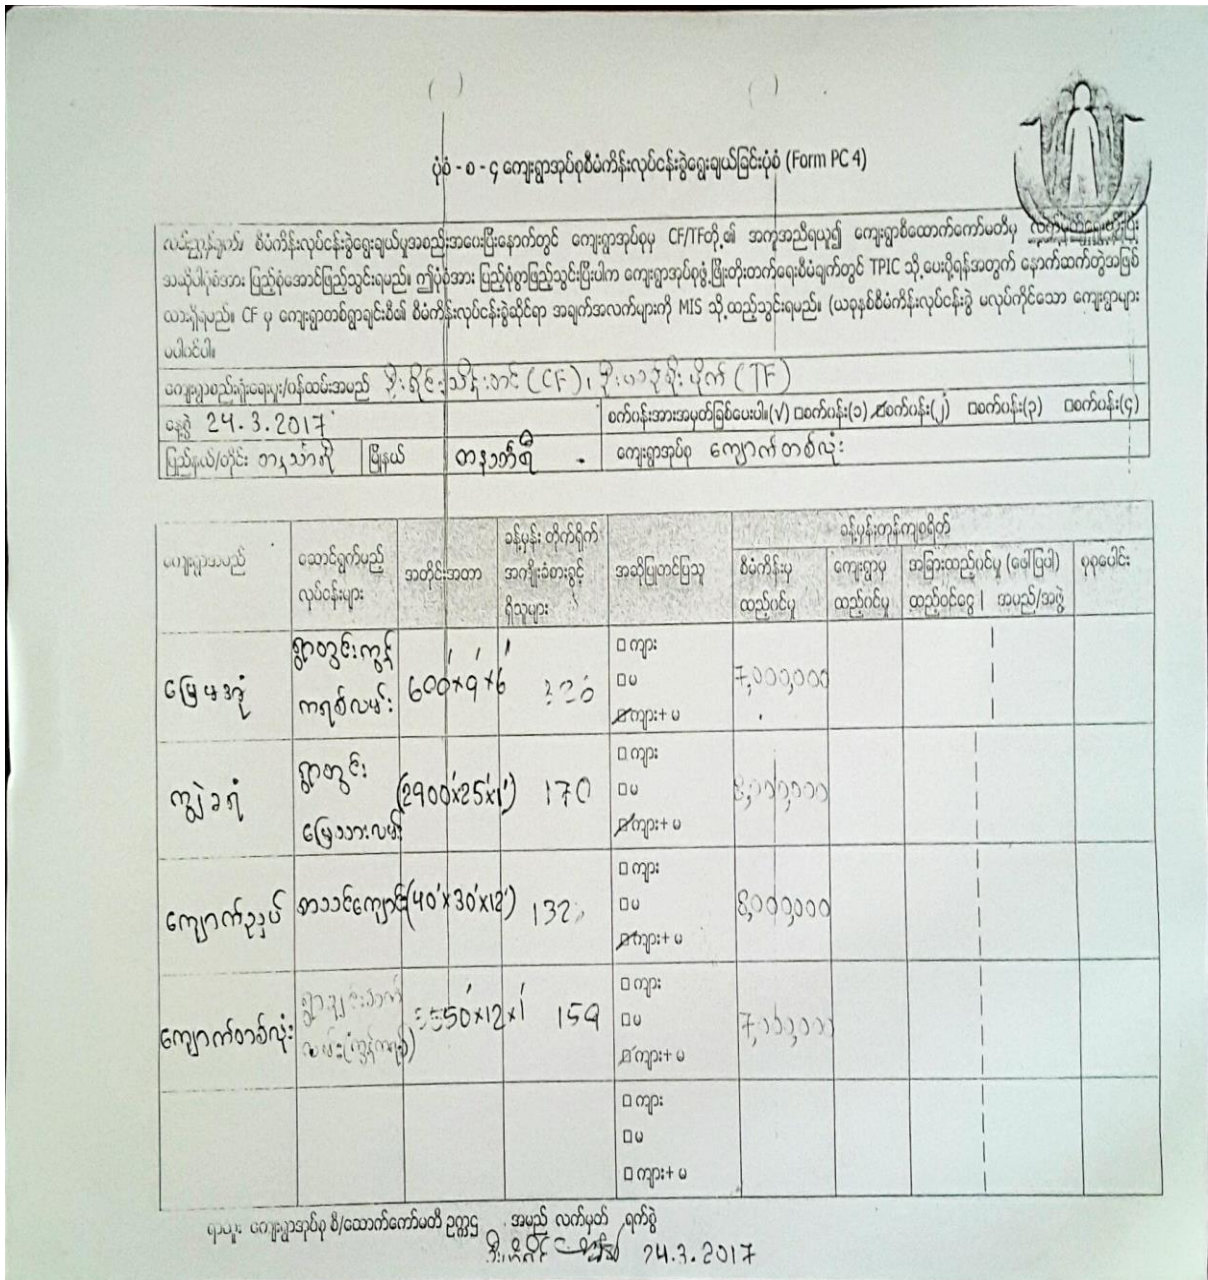 ပုံစံ - စ - ၄ ကျေးရွာအုပ်စုစီမံကိန်းလုပ်ငန်းခွဲရွေးချယ်ခြင်းပုံစံ (Form PC 4)
လမ်းညွှန်ချက်။ စီမံကိန်းလုပ်ငန်းခွဲရွေးချယ်မှုအစည်းအဝေးပြီးနောက်တွင် ကျေးရွာအုပ်စုမှ CF/TFတို့၏ အကူအညီရယူ၍ ကျေးရွာစီထောက်ကော်မတီမှ
အဆိုပါပုံစံအား ပြည့်စုံအောင်ဖြည့်သွင်းရမည်။ ဤပုံစံအား ပြည့်စုံစွာဖြည့်သွင်းပြီးပါက ကျေးရွာအုပ်စုဖွံ့ဖြိုးတိုးတက်ရေးစီမံချက်တွင် TPIC သို့ပေးပို့ရန်အတွက် နောက်ဆက်တွဲအဖြစ်
ထားရှိရမည်။ CF မှ ကျေးရွာတစ်ရွာချင်းစီ၏ စီမံကိန်းလုပ်ငန်းခွဲဆိုင်ရာ အချက်အလက်များကို MIS သို့ထည့်သွင်းရမည်။ (ယခုနှစ်စီမံကိန်းလုပ်ငန်းခွဲ မလုပ်ကိုင်သော ကျေးရွာများ
မပါဝင်ပါ။
ကျေးရွာစည်းရုံးရေးမှူး/ဝန်ထမ်းအမည် (CF)၊ (TF)
နေ့စွဲ 24.3.2017 စက်ဝန်းအားအမှတ်ခြစ်ပေးပါ။(√) □စက်ဝန်း(၁) ☑စက်ဝန်း(၂) □စက်ဝန်း(၃) □စက်ဝန်း(၄)
ပြည်နယ်/တိုင်း တနင်္သာရီ မြို့နယ် တနင်္သာရီ ကျေးရွာအုပ်စု ကျောက်တစ်လုံး
ကျေးရွာအမည် ဆောင်ရွက်မည့် လုပ်ငန်းများ အတိုင်းအတာ ခန့်မှန်း တိုက်ရိုက် အကျိုးခံစားခွင့် ရှိသူများ အဆိုပြုတင်ပြသူ ခန့်မှန်းကုန်ကျစရိတ်
စီမံကိန်းမှ ထည့်ဝင်မှု ကျေးရွာမှ ထည့်ဝင်မှု အခြားထည့်ဝင်မှု (ဖော်ပြပါ) ထည့်ဝင်ငွေ | အမည်/အဖွဲ့ စုစုပေါင်း
ရွာတွင်းကွန်ကရစ်လမ်း 600'x9'x6' □ ကျား □ မ ☑ ကျား+ မ 7,000,000
ကျွဲခရံ ရွာတွင်း မြေသားလမ်း (2900'x25'x1') 170 □ ကျား □ မ ☑ ကျား+ မ 8,000,000
စာသင်ကျောင်း (40'x30'x12') 132 □ ကျား □ မ ☑ ကျား+ မ 8,000,000
ကျောက်တစ်လုံး 159 □ ကျား □ မ ☑ ကျား+ မ
□ ကျား □ မ □ ကျား+ မ
ကျေးရွာအုပ်စု စီ/ထောက်ကော်မတီ ဥက္ကဋ္ဌ အမည် လက်မှတ် ရက်စွဲ
24.3.2017